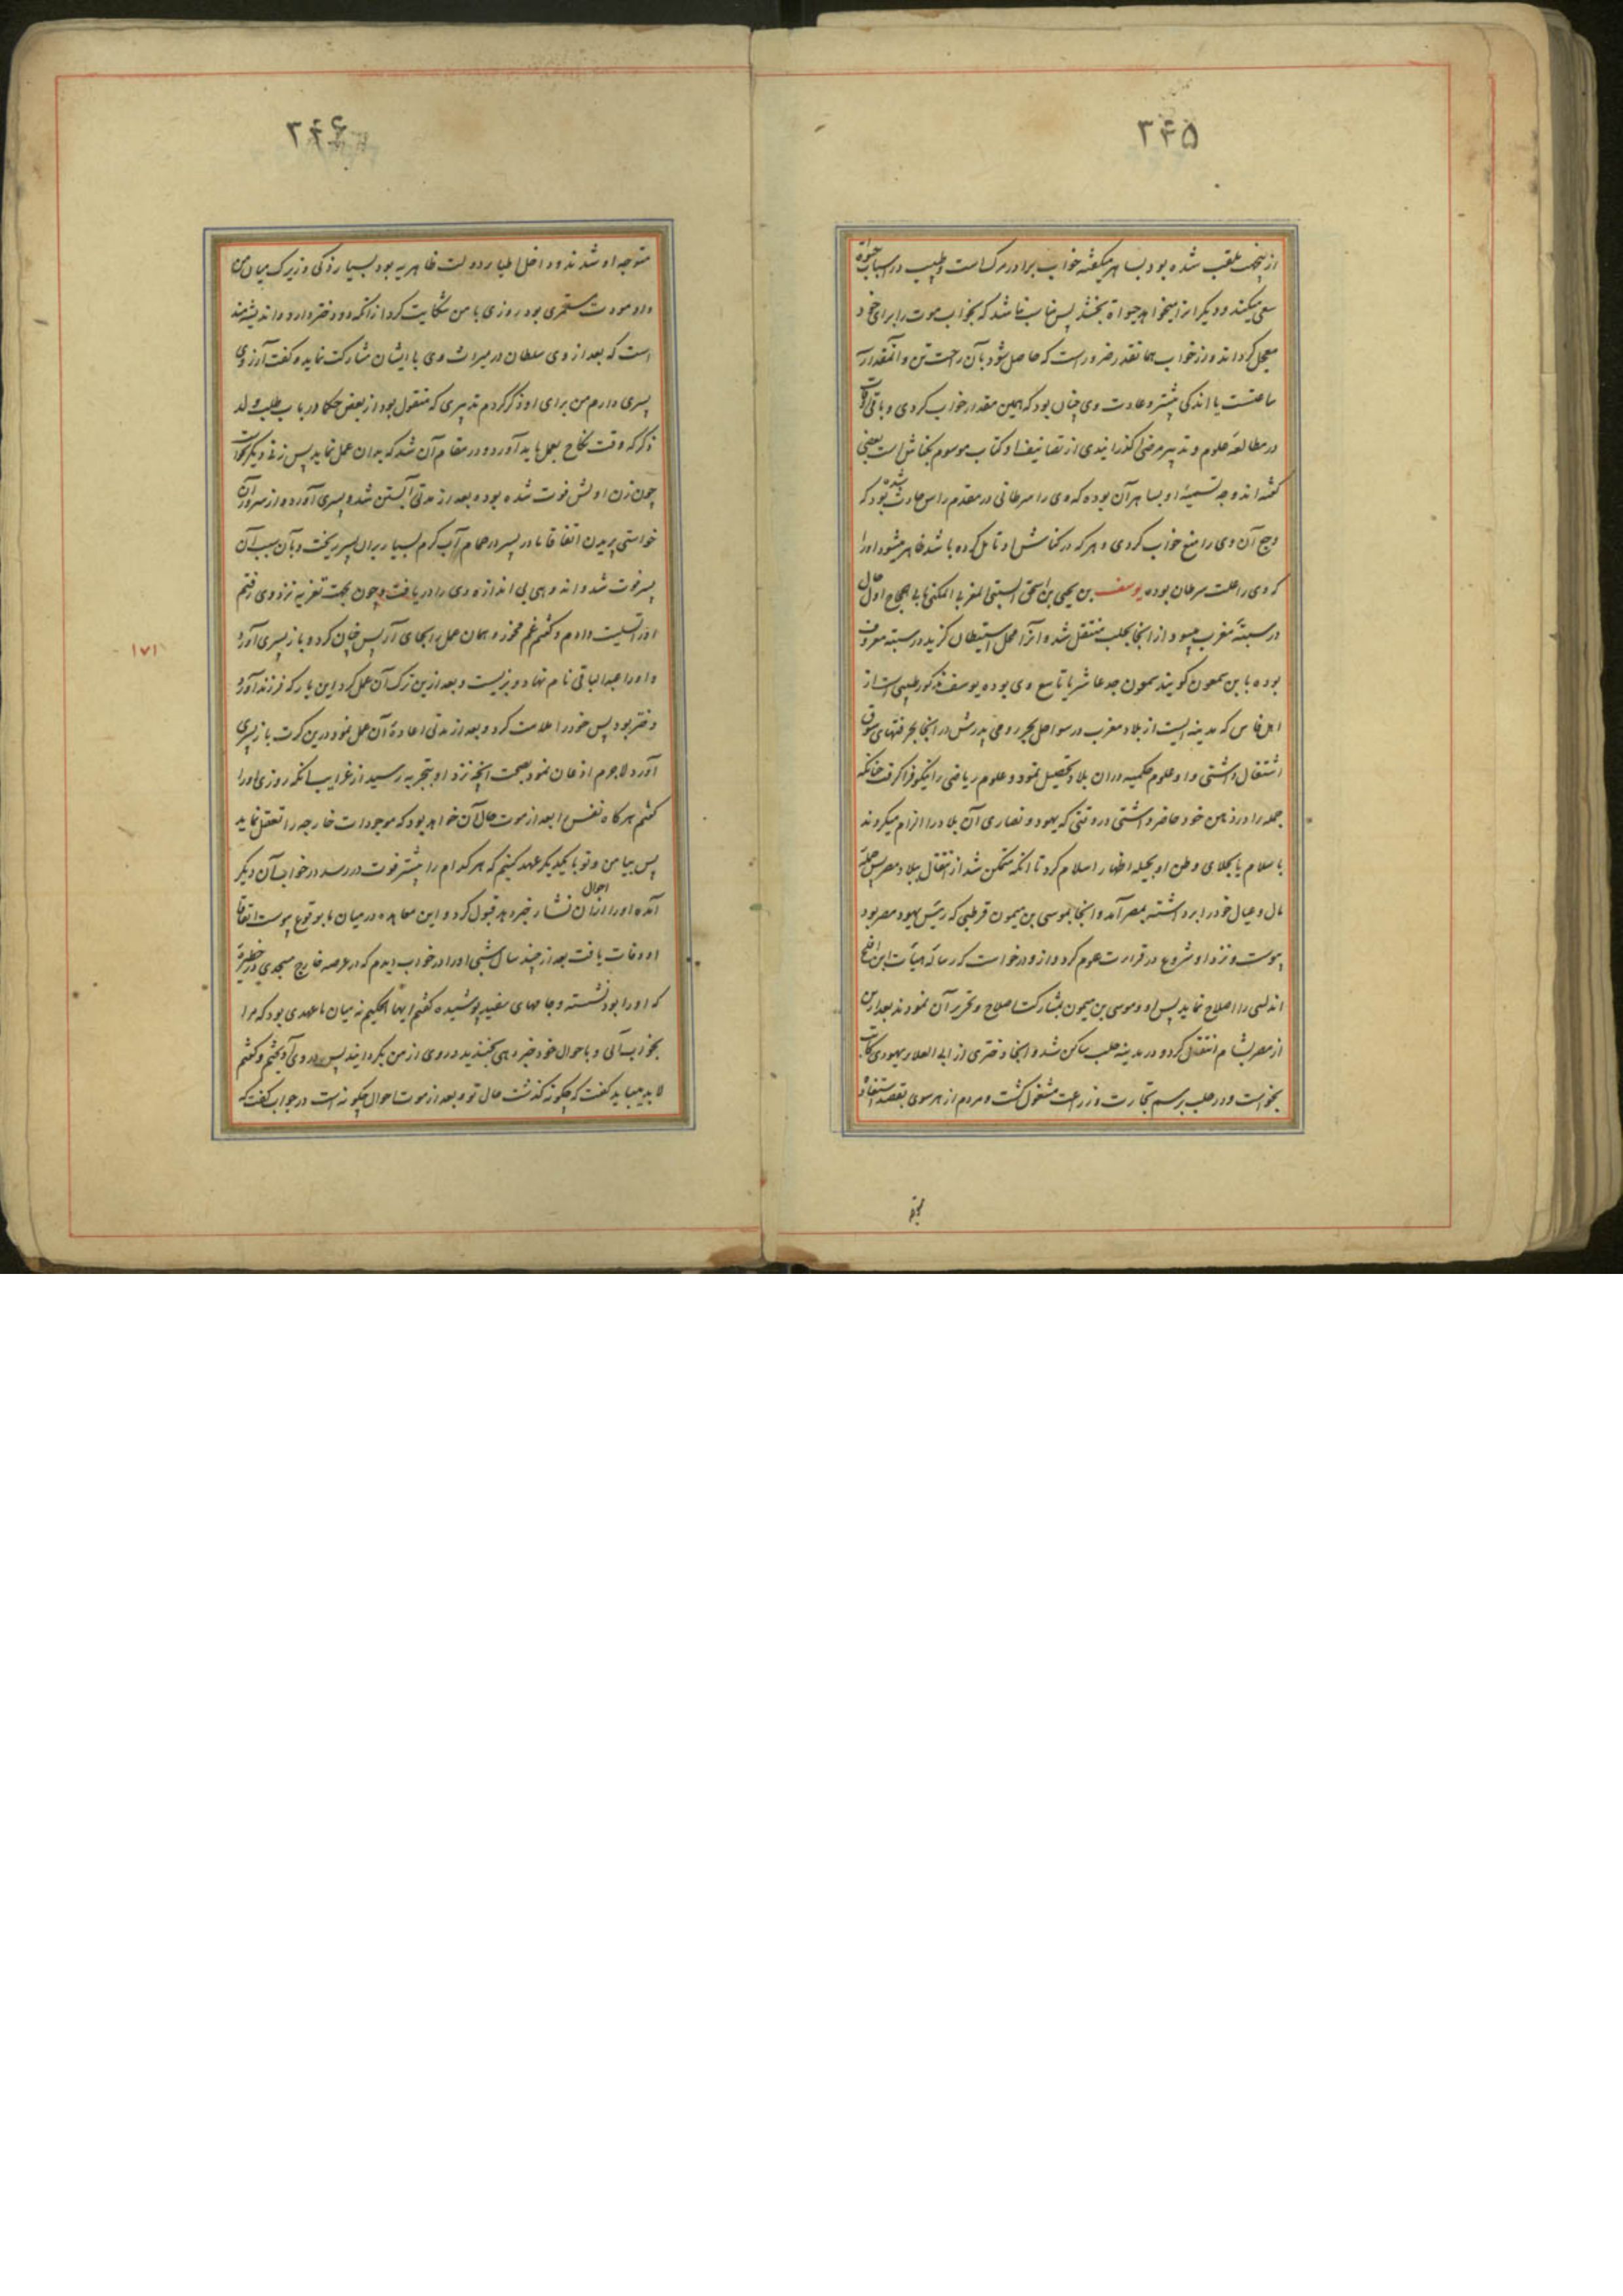 ۳۴۵
ازینجهت ملقب شده بود بساهر میگفته خواب برادر مرک است و طبیب در اسباب حیوة
سعی میکند و دیگرانرا میخواهد حیواة بخشد پس مناسب نباشد که بخواب موت را برای خود
معجل گرداند و از خواب همانقدر ضرور است که حاصل شود بآن راحت تن و آنمقدار
ساعتست یا اندکی بیشتر و عادت وی چنان بود که همین مقدار خواب کردی و باقی اوقات
در مطالعه علوم و تدبیر مرضی گذرانیدی از تصانیف او کتاب موسوم بکناش است بعضی
گفته اند وجه تسمیه او بساهر آن بوده که وی را سرطانی در مقدم راس حادث شده بود که
وجع آن وی را منع خواب کردی و هر که در کناش او تامل کرده باشد ظاهر میشود او را
که وی را علت سرطان بوده یوسف بن یحیی بن اسحق السبتی المغربی المکنی بابی الحجاج اول حال
در سبته مغرب میبود از آنجا بحلب منتقل شد و آنرا محل استیطان گزید در سبته معروف
بوده بابن سمعون گویند سمعون جد عاشر یا تاسع وی بوده یوسف مذکور طبیبی است از
اهل فاس که مدینه ایست از بلاد مغرب در سواحل بحر رومی پدرش در آنجا بحرفتهای سوق
اشتغال داشتی و او علوم حکمیه در آن بلاد تحصیل نمود و علوم ریاضی را نیکو فرا گرفت چنانکه
جمله را در ذهن خود حاضر داشتی در وقتی که یهود و نصاری آن بلاد را الزام میکردند
باسلام یا بجلای وطن او بحیله اظهار اسلام کرد تا آنکه متمکن شد از انتقال ببلاد مصر پس جمله
مال و عیال خود را برداشته بمصر آمد و آنجا بموسی بن میمون قرطبی که رئیس یهود مصر بود
پیوست و نزد او شروع در قراءت علوم کرد و از و درخواست که رساله هیأت ابن افلح
اندلسی را اصلاح نماید پس او و موسی بن میمون بمشارکت اصلاح و تحریر آن نمودند بعد ازین
از مصر بشام انتقال کرد و در مدینه حلب ساکن شد و آنجا دختری از ابی العلاء یهودی کاتب
بخواست و در حلب برسم تجارت و زراعت مشغول گشت و مردم از هر سوی بقصد استفاده
۳۴۶
متوجه او شدند و داخل اطباء دولت ظاهریه بود بسیار ذکی و زیرک میان من
و او مودت مستمری بود روزی با من شکایت کرد از آنکه دو دختر دارد و اندیشه مند
است که بعد از وی سلطان در میراث وی با ایشان مشارکت نماید و گفت آرزوی
پسری دارم من برای او ذکر کردم تدبیری که منقول بود از بعض حکما در باب طلب ولد
ذکر که وقت نکاح بعمل باید آورد و در مقام آن شد که بدان عمل نماید پس زنی دیگر خواست
چون زن اولش فوت شده بوده بعد از مدتی آبستن شده پسری آورده از سرور آن
خواستی پریدن اتفاقا مادر پسر در حمام آب گرم بسیار بر آن پسر ریخت و بآن سبب آن
پسر فوت شد و اندوهی بی اندازه وی را دریافت و چون بجهت تعزیه نزد وی رفتم
او را تسلیت دادم و گفتم غم مخور و همان عمل را بجای آر پس چنان کرد و باز پسری آورد
و او را عبدالباقی نام نهاد و بزیست و بعد ازین ترک آن عمل کرد این بار که فرزند آورد
دختر بود پس خود را ملامت کرد و بعد از مدتی اعاده آن عمل نمود درین کرت باز پسری
آورد لاجرم اذعان نمود بصحت آنچه نزد او بتجربه رسید از غرایب آنکه روزی او را
گفتم هرگاه نفس را بعد از موت حال آن خواهد بود که موجودات خارجه را تعقل نماید
پس بیا من و تو با یکدیگر عهد کنیم که هر کدام را پیشتر فوت در رسد در خواب آن دیگر
آمده او را از احوال آن نشأه خبر دهد قبول کرد و این معاهده در میان ما بوقوع پیوست اتفاقا
او وفات یافت بعد از چند سال شبی او را در خواب دیدم که در عرصه خارج مسجدی در حظیره
که او را بود نشسته و جامهای سفید پوشیده گفتم ایها الحکیم نه میان ما عهدی بود که مرا
بخواب آئی و باحوال خود خبر دهی بخندید و روی از من بگردانید پس در وی آویختم و گفتم
لابد میباید گفت که چگونه گذشت حال تو و بعد از موت احوال چگونه است در جواب گفت که
۱۷۱